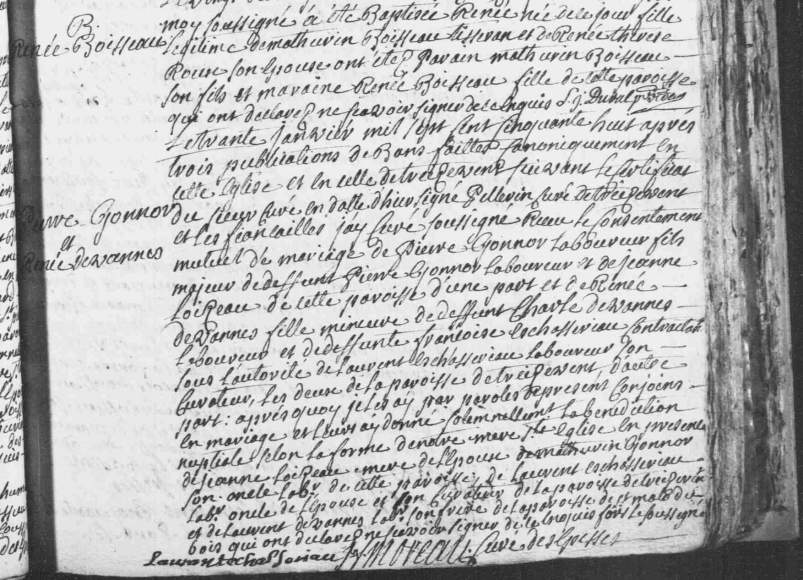 B.
Renée Boisseau
moy soussigné a été Baptisée Renée née de ce jour fille
legitime de mathurin Boisseau tisseran et de Renée therese
Roux son Epouse ont été parain mathurin Boisseau
son fils et maraine Renée Boisseau fille de cette paroisse
qui ont declaré ne sçavoir signer de ce enquis S. J. Duval
Le trante janvier mil sept cent cinquante huit apres
trois publications de Bans faittes canoniquement en
cette Eglise et en celle de treizevent suivant le certificat
du sieur curé en datte d'hier signé Pellerin curé de treizevent
Pierre Gonnor
et
Renée devannes
et les fiancailles j'ay curé soussigné Receu le consentement
mutuel de mariage de Pierre Gonnor laboureur fils
majeur de deffunt Pierre Gonnor laboureur et de jeanne
Loiseau de cette paroisse d'une part et de Renée
devannes fille mineure de deffunt Charle devannes
laboureur et de deffunte françoise eschasseriau contractante
sous l'autorité de laurent eschasseriau laboureur son
curateur, les deux de la paroisse de treizevent, d'autre
part: apres quoy je les ay par paroles de present conjoins
en mariage et leurs ay donné solemnellement la benediction
nuptiale selon la forme de notre mere Ste Eglise en presence
de jeanne Loiseau mere de l'Epoux de mathurin Gonnor
son oncle labr de cette paroisse, de laurent eschasseriau
labr oncle de l'Epouse et son curateur de la paroisse de treizevent
et de laurent devannes labr son frere de la paroisse de st malo du
bois qui ont declaré ne sçavoir signer de ce enquis fors le soussigné
laurant echasseriau J. Moreau Curé des